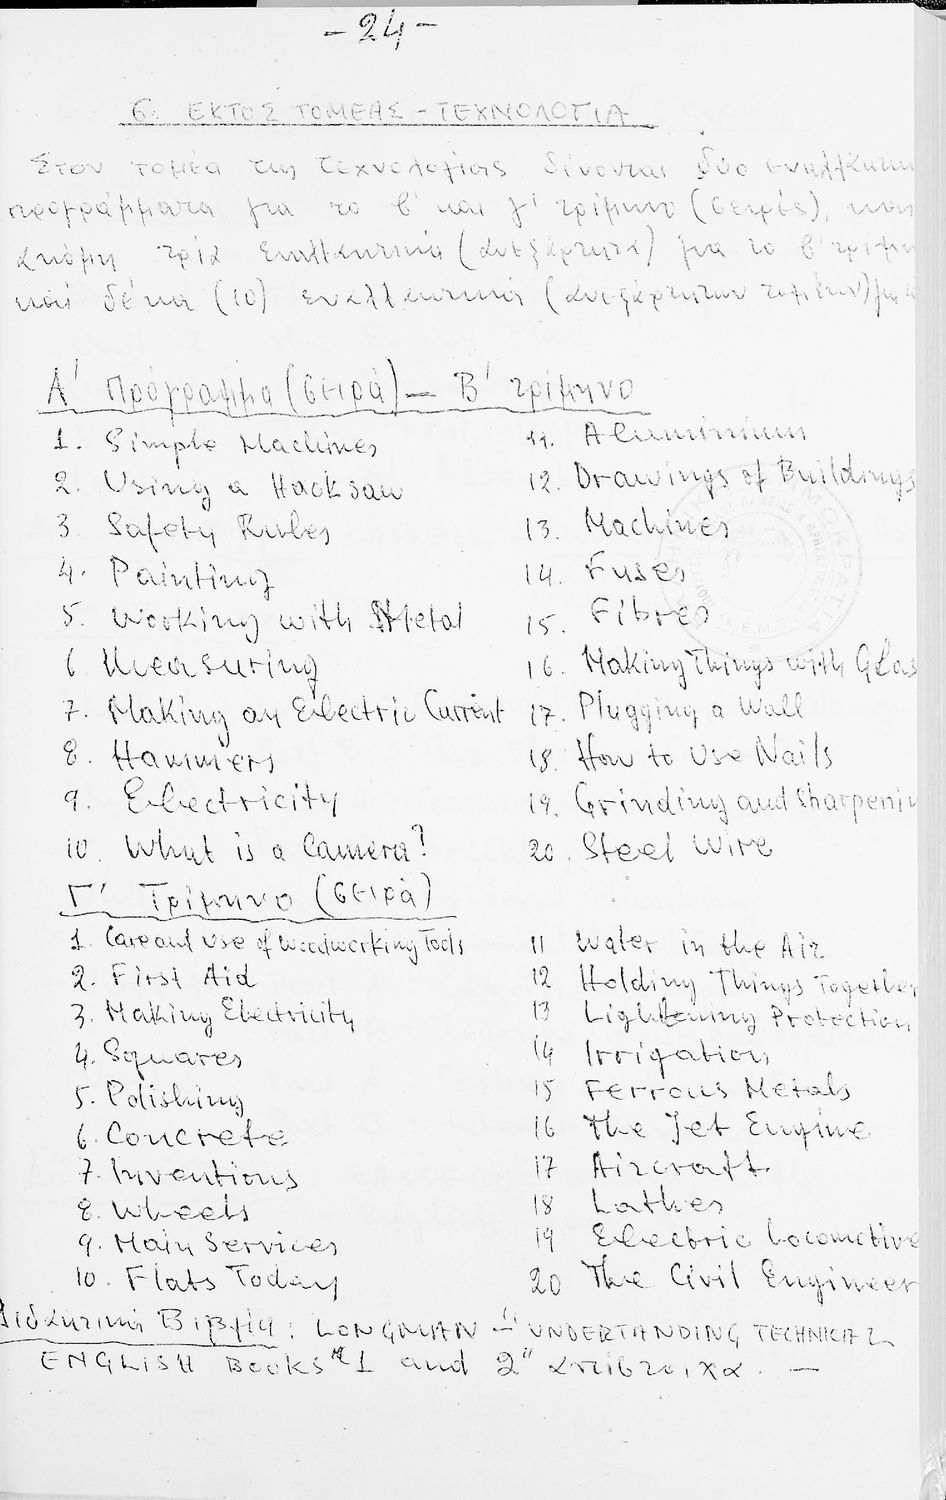 -24-
6. ΕΚΤΟΣ ΤΟΜΕΗΣ - ΤΕΧΝΟΛΟΓΙΑ
Στον τομέα της τεχνολογίας δίνονται δύο
προγράμματα για το β' και γ' τρίμηνο (σειρές), και
ακόμη τρία εναλλακτικά (ανεξάρτητα) για το β' τρίμη
και δέκα (10) εναλλακτικά (ανεξάρτητων
Α' Πρόγραμμα (σειρά) - Β' τρίμηνο
1. Simple Machines
2. Using a Hacksaw
3 Safety Rules
4. Painting
5. Working with Metal
6 Measuring
7. Making an Electric Current
8. Hammers
9. Electricity
10. What is a Camera?
11. Aluminium
12. Drawings of Buildings
13. Machines
14. Fuses
15. Fibres
16. Making Things with Glas
17. Plugging a Wall
18. How to Use Nails
19. Grinding and Sharpenin
20. Steel Wire
Γ' Τρίμηνο (σειρά)
1. Care and Use of Woodworking Tools
2. First Aid
3. Making Electricity
4. Squares
5. Polishing
6. Concrete
7. Inventions
8. Wheels
9. Main Services
10. Flats Today
11 Water in the Air
12 Holding Things Together
13 Lightening Protection
14 Irrigation
15 Ferrous Metals
16 The Jet Engine
17 Aircraft
18 Lathes
19 Electric Locomotive
20 The Civil Engineer
Διδακτικά Βιβλία: LONGMAN - "UNDERTANDING TECHNICAL
ENGLISH BOOKS "1 and 2" αντίστοιχα. -